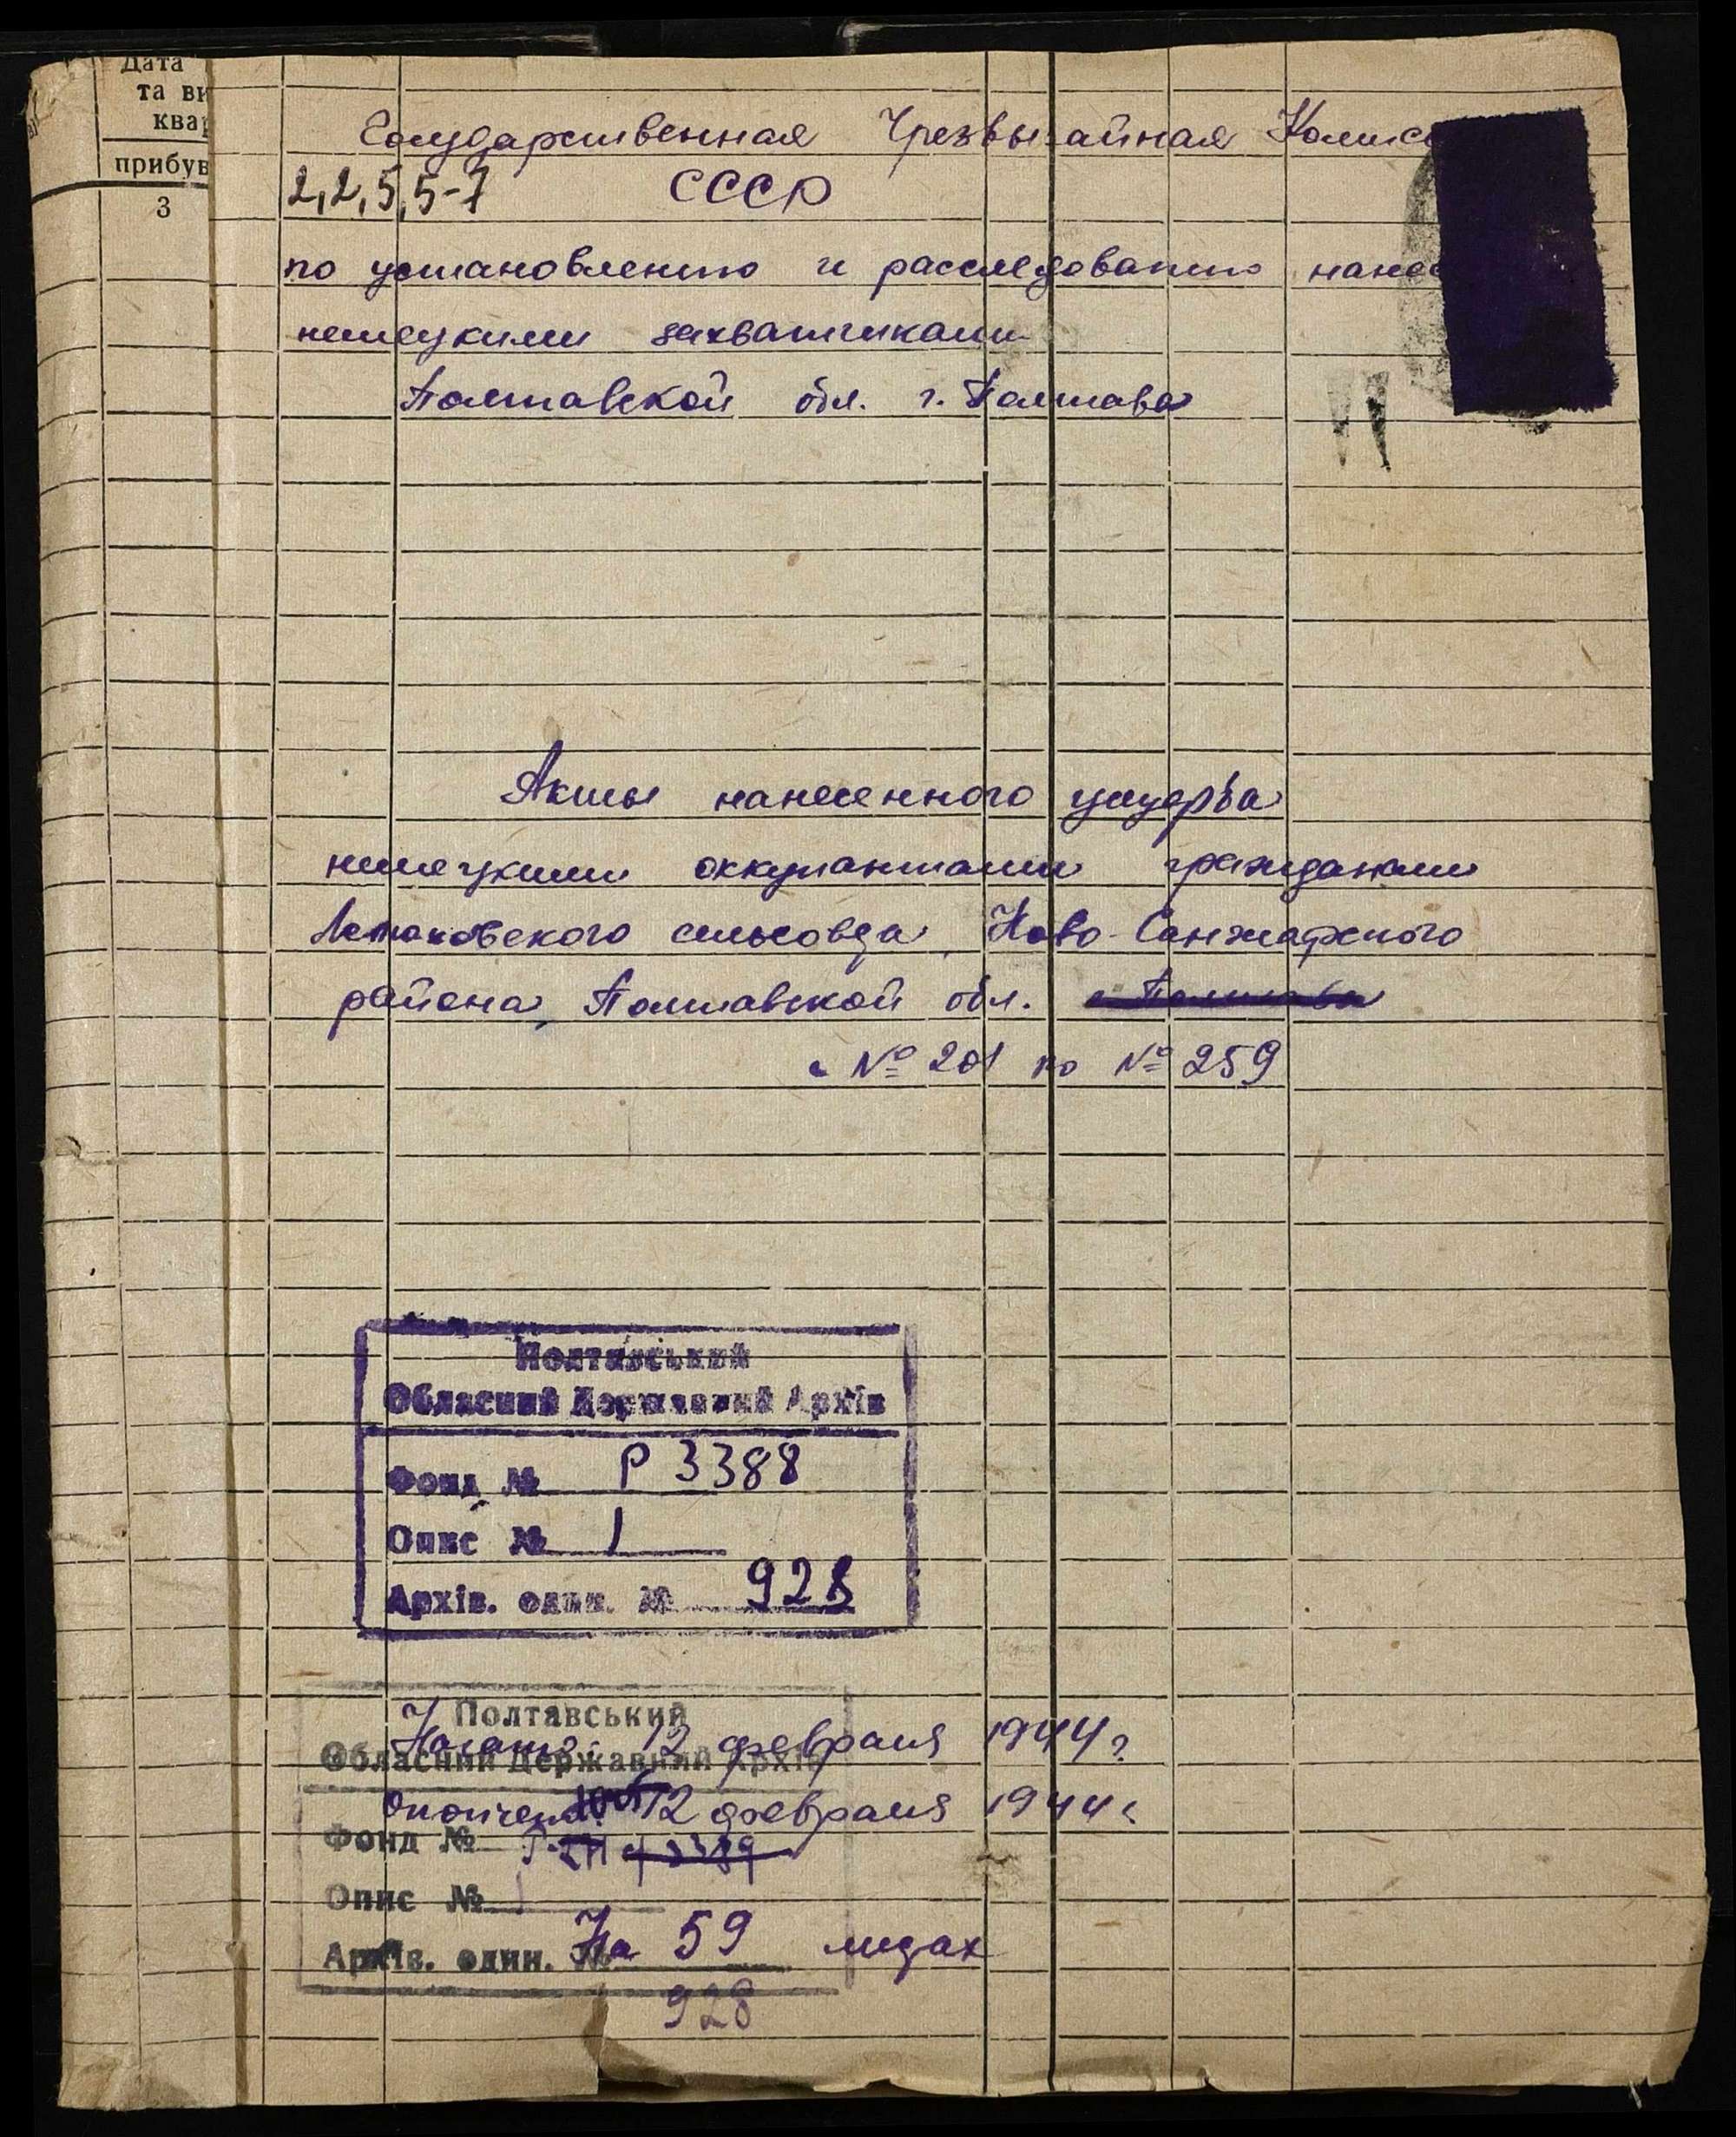 Дата
та ви
квар
прибув
3
Государственная Чрезвычайная Комисс
2,2,5,5-7 СССР
по установлению и расследованию нанес
немецкими захватчиками
Полтавской обл. г. Полтава
Акты нанесенного ущерба
немецкими оккупантами гражданам
сельсовета, Ново-Санжарского
района, Полтавской обл. г. Полтава
с № 201 по № 259
Полтавський
Обласний Державний Архів
Фонд № Р 3388
Опис № 1
Архів. один. № 928
Полтавський
Начато: 12 февраля 1944 г
Обласний Державний Архів
Окончено: 12 февраля 1944 г
Фонд №
Опис № 1
На 59 лицах
Архів. один. №
928